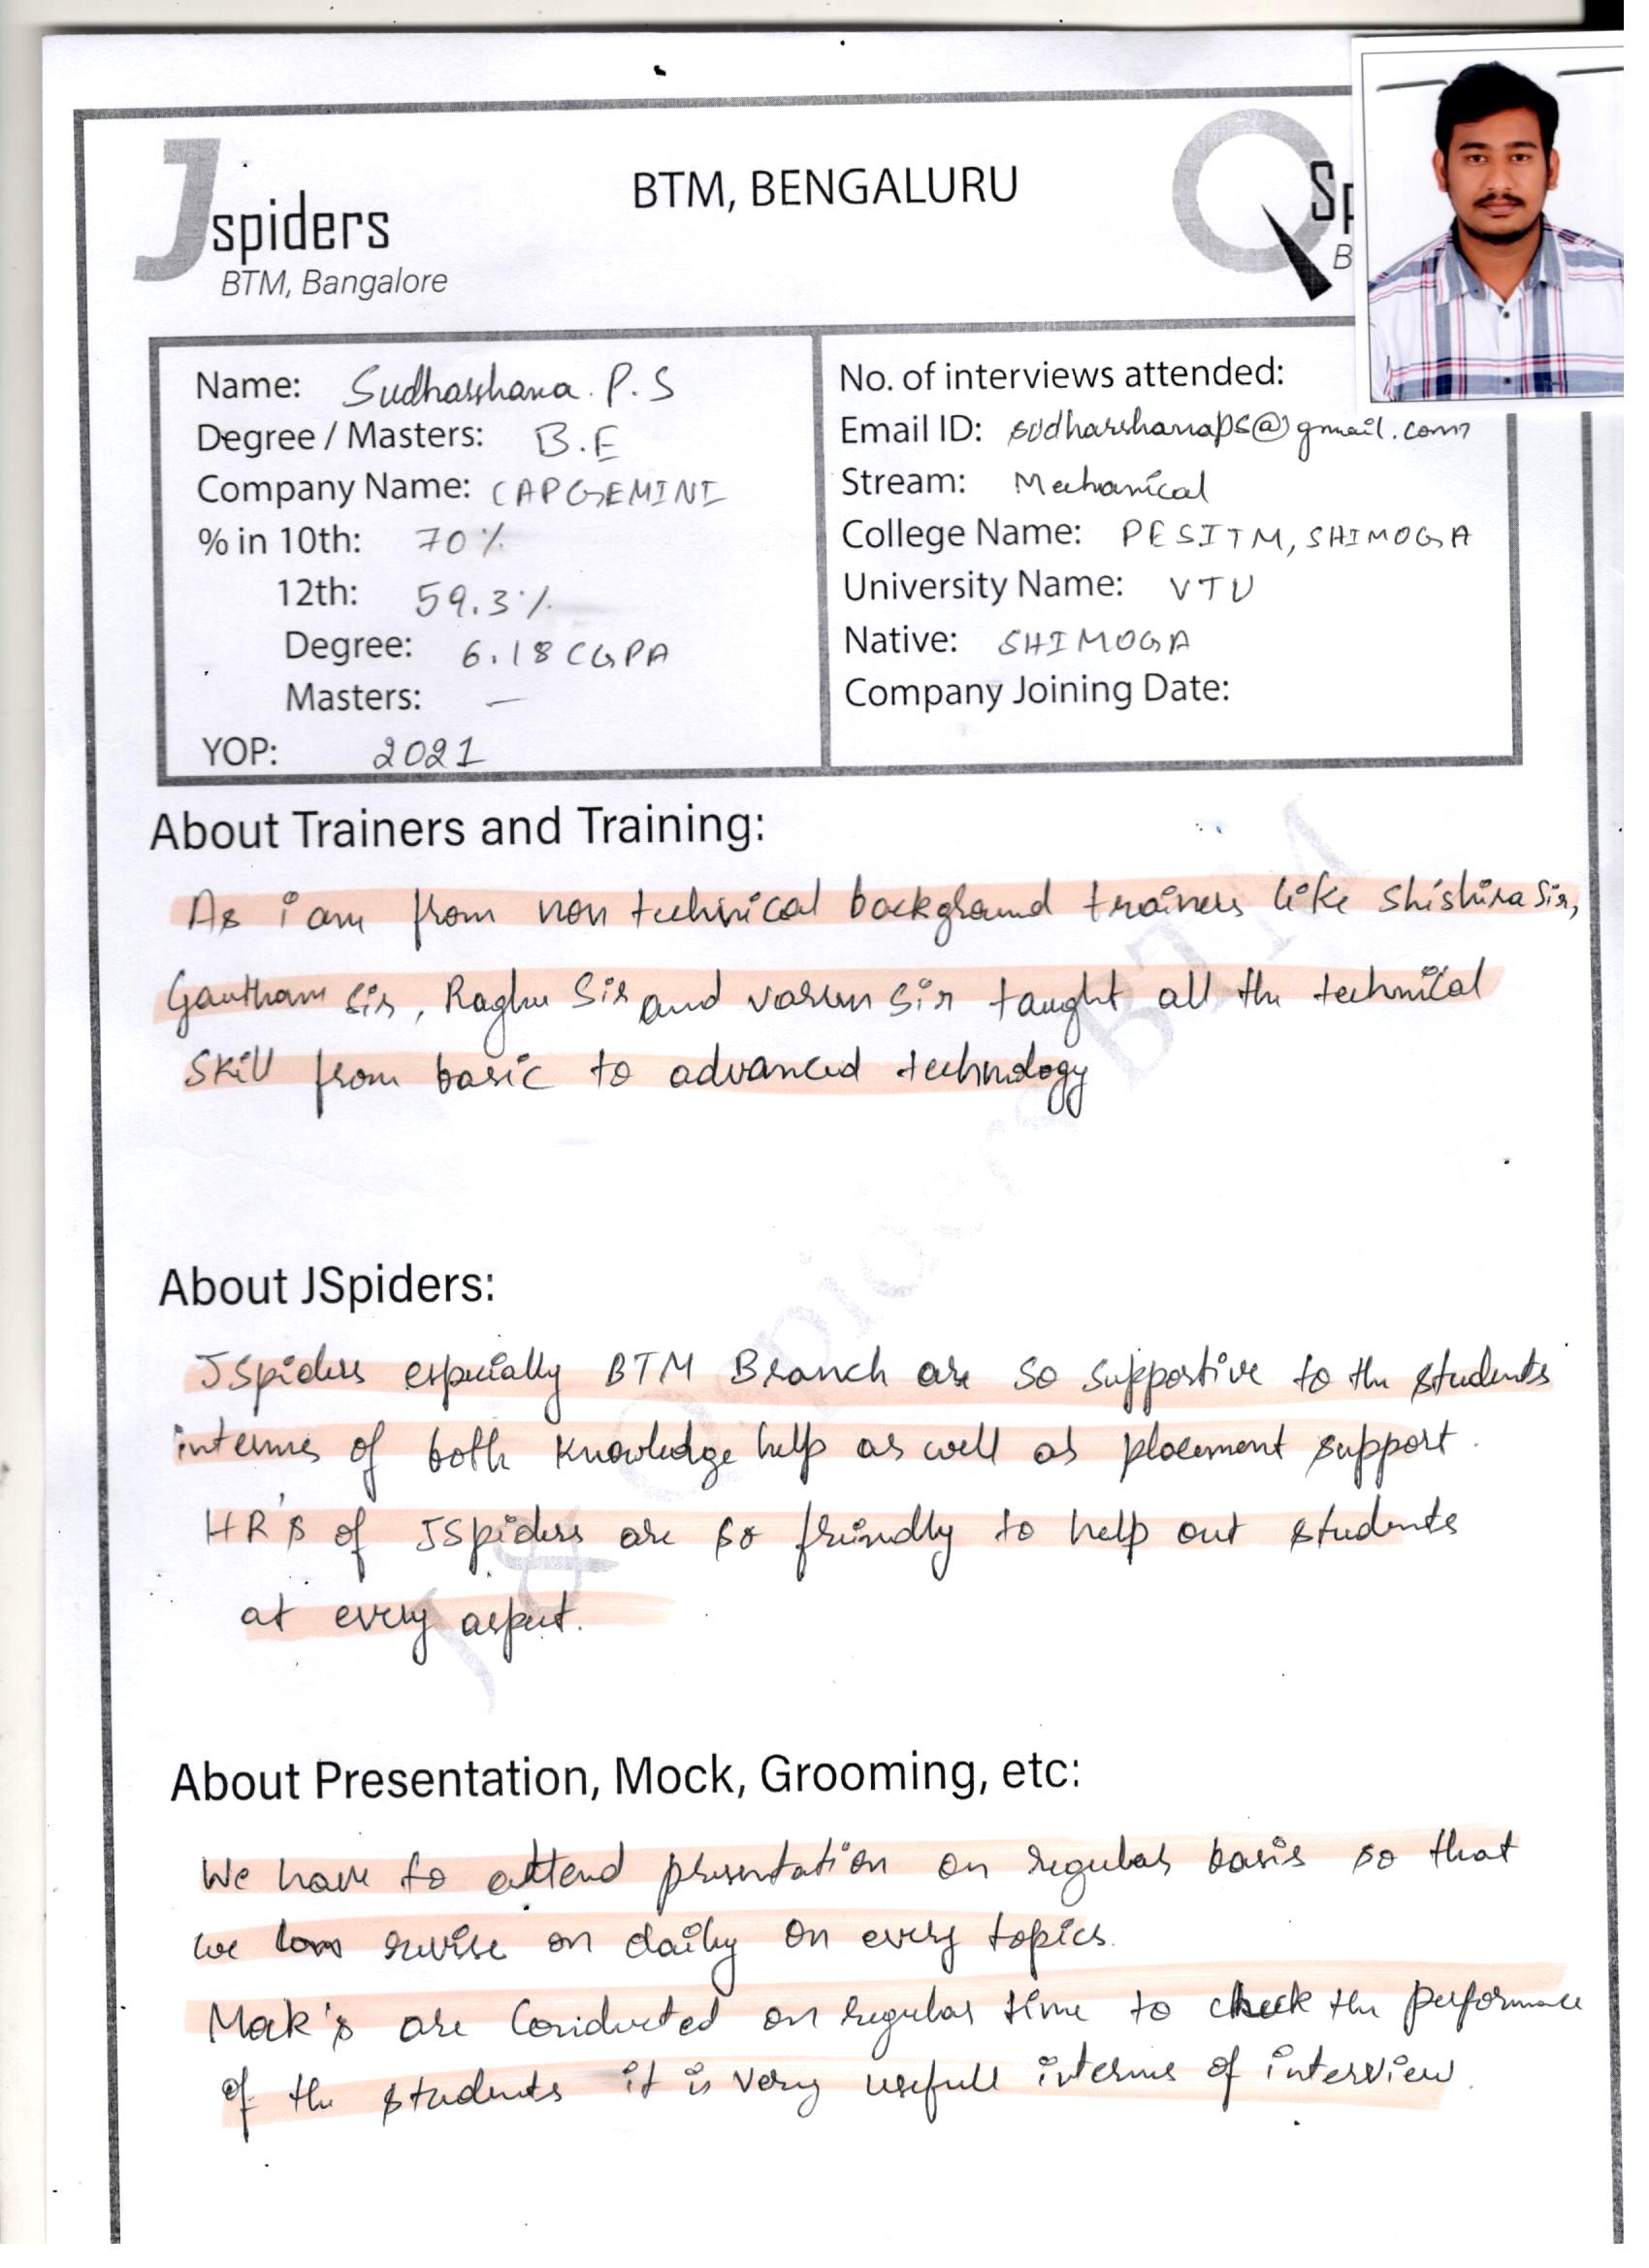 Jspiders
BTM, Bangalore
BTM, BENGALURU
QSp
B
Name: Sudharshana. P.S
Degree / Masters: B.E
Company Name: CAPGEMINI
% in 10th: 70%
12th: 59.3%
Degree: 6.18 CGPA
Masters: —
YOP: 2021
No. of interviews attended:
Email ID: sudharshanaps@gmail.com
Stream: Mechanical
College Name: PESITM, SHIMOGA
University Name: VTU
Native: SHIMOGA
Company Joining Date:
About Trainers and Training:
As i am from non technical background trainers like Shishira Sir,
Gautham sir, Raghu Sir and varun sir taught all the technical
Skill from basic to advanced technology
About JSpiders:
JSpiders especially BTM Branch are so supportive to the students
interms of both knowledge help as well as placement support.
HR's of JSpiders are so friendly to help out students
at every aspect.
About Presentation, Mock, Grooming, etc:
We have to attend presentation on regular basis so that
we revise on daily on every topics.
Mock's are Conducted on regular time to check the performance
of the students it is very usefull interms of interview.
J & QSpiders BTM